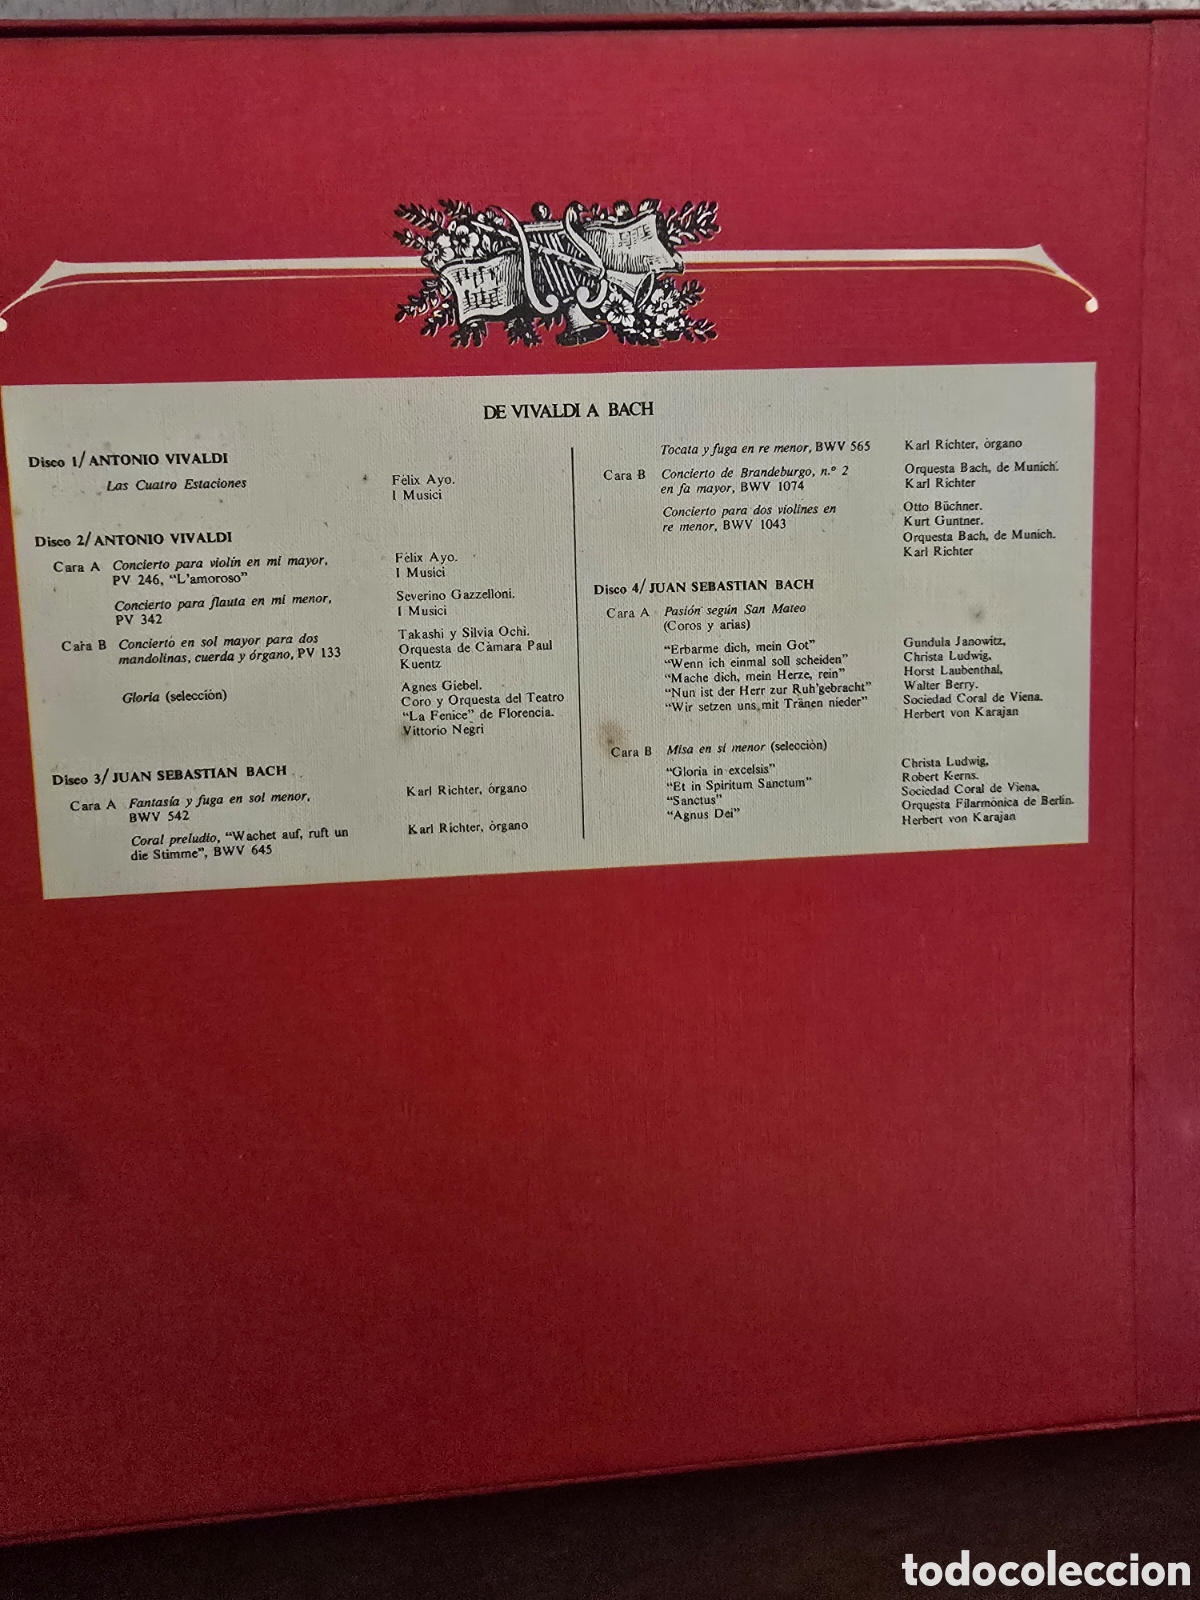 DE VIVALDI A BACH
Disco 1/ ANTONIO VIVALDI
Las Cuatro Estaciones
Fèlix Ayo.
I Musici
Disco 2/ ANTONIO VIVALDI
Cara A Concierto para violín en mi mayor,
PV 246, "L'amoroso"
Fèlix Ayo.
I Musici
Concierto para flauta en mi menor,
PV 342
Severino Gazzelloni.
I Musici
Cara B Concierto en sol mayor para dos
mandolinas, cuerda y órgano, PV 133
Takashi y Silvia Ochi.
Orquesta de Càmara Paul
Kuentz
Gloria (selección)
Agnes Giebel.
Coro y Orquesta del Teatro
"La Fenice" de Florencia.
Vittorio Negri
Disco 3/ JUAN SEBASTIAN BACH
Cara A Fantasía y fuga en sol menor,
BWV 542
Karl Richter, órgano
Coral preludio, "Wachet auf, ruft un
die Stimme", BWV 645
Karl Richter, òrgano
Tocata y fuga en re menor, BWV 565
Karl Richter, òrgano
Cara B Concierto de Brandeburgo, n.º 2
en fa mayor, BWV 1074
Orquesta Bach, de Munich.
Karl Richter
Concierto para dos violines en
re menor, BWV 1043
Otto Büchner.
Kurt Guntner.
Orquesta Bach, de Munich.
Karl Richter
Disco 4/ JUAN SEBASTIAN BACH
Cara A Pasión según San Mateo
(Coros y arias)
"Erbarme dich, mein Got"
"Wenn ich einmal soll scheiden"
"Mache dich, mein Herze, rein"
"Nun ist der Herr zur Ruh'gebracht"
"Wir setzen uns mit Tränen nieder"
Gundula Janowitz,
Christa Ludwig,
Horst Laubenthal,
Walter Berry.
Sociedad Coral de Viena.
Herbert von Karajan
Cara B Misa en si menor (selección)
"Gloria in excelsis"
"Et in Spiritum Sanctum"
"Sanctus"
"Agnus Dei"
Christa Ludwig,
Robert Kerns.
Sociedad Coral de Viena,
Orquesta Filarmònica de Berlín.
Herbert von Karajan
todocoleccion